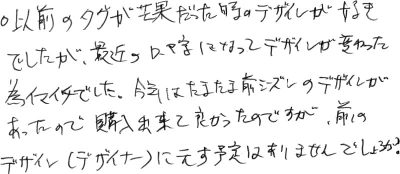 ○以前のタグが芒果だった時のデザインが好き
でしたが、最近のロ文字になってデザインが変わった
為イマイチでした。今気はたまたま前シーズンのデザインが
あったので購入出来て良かったのですが、前の
デザイン(デザイナー)に元す予定は有りませんでしょうか?